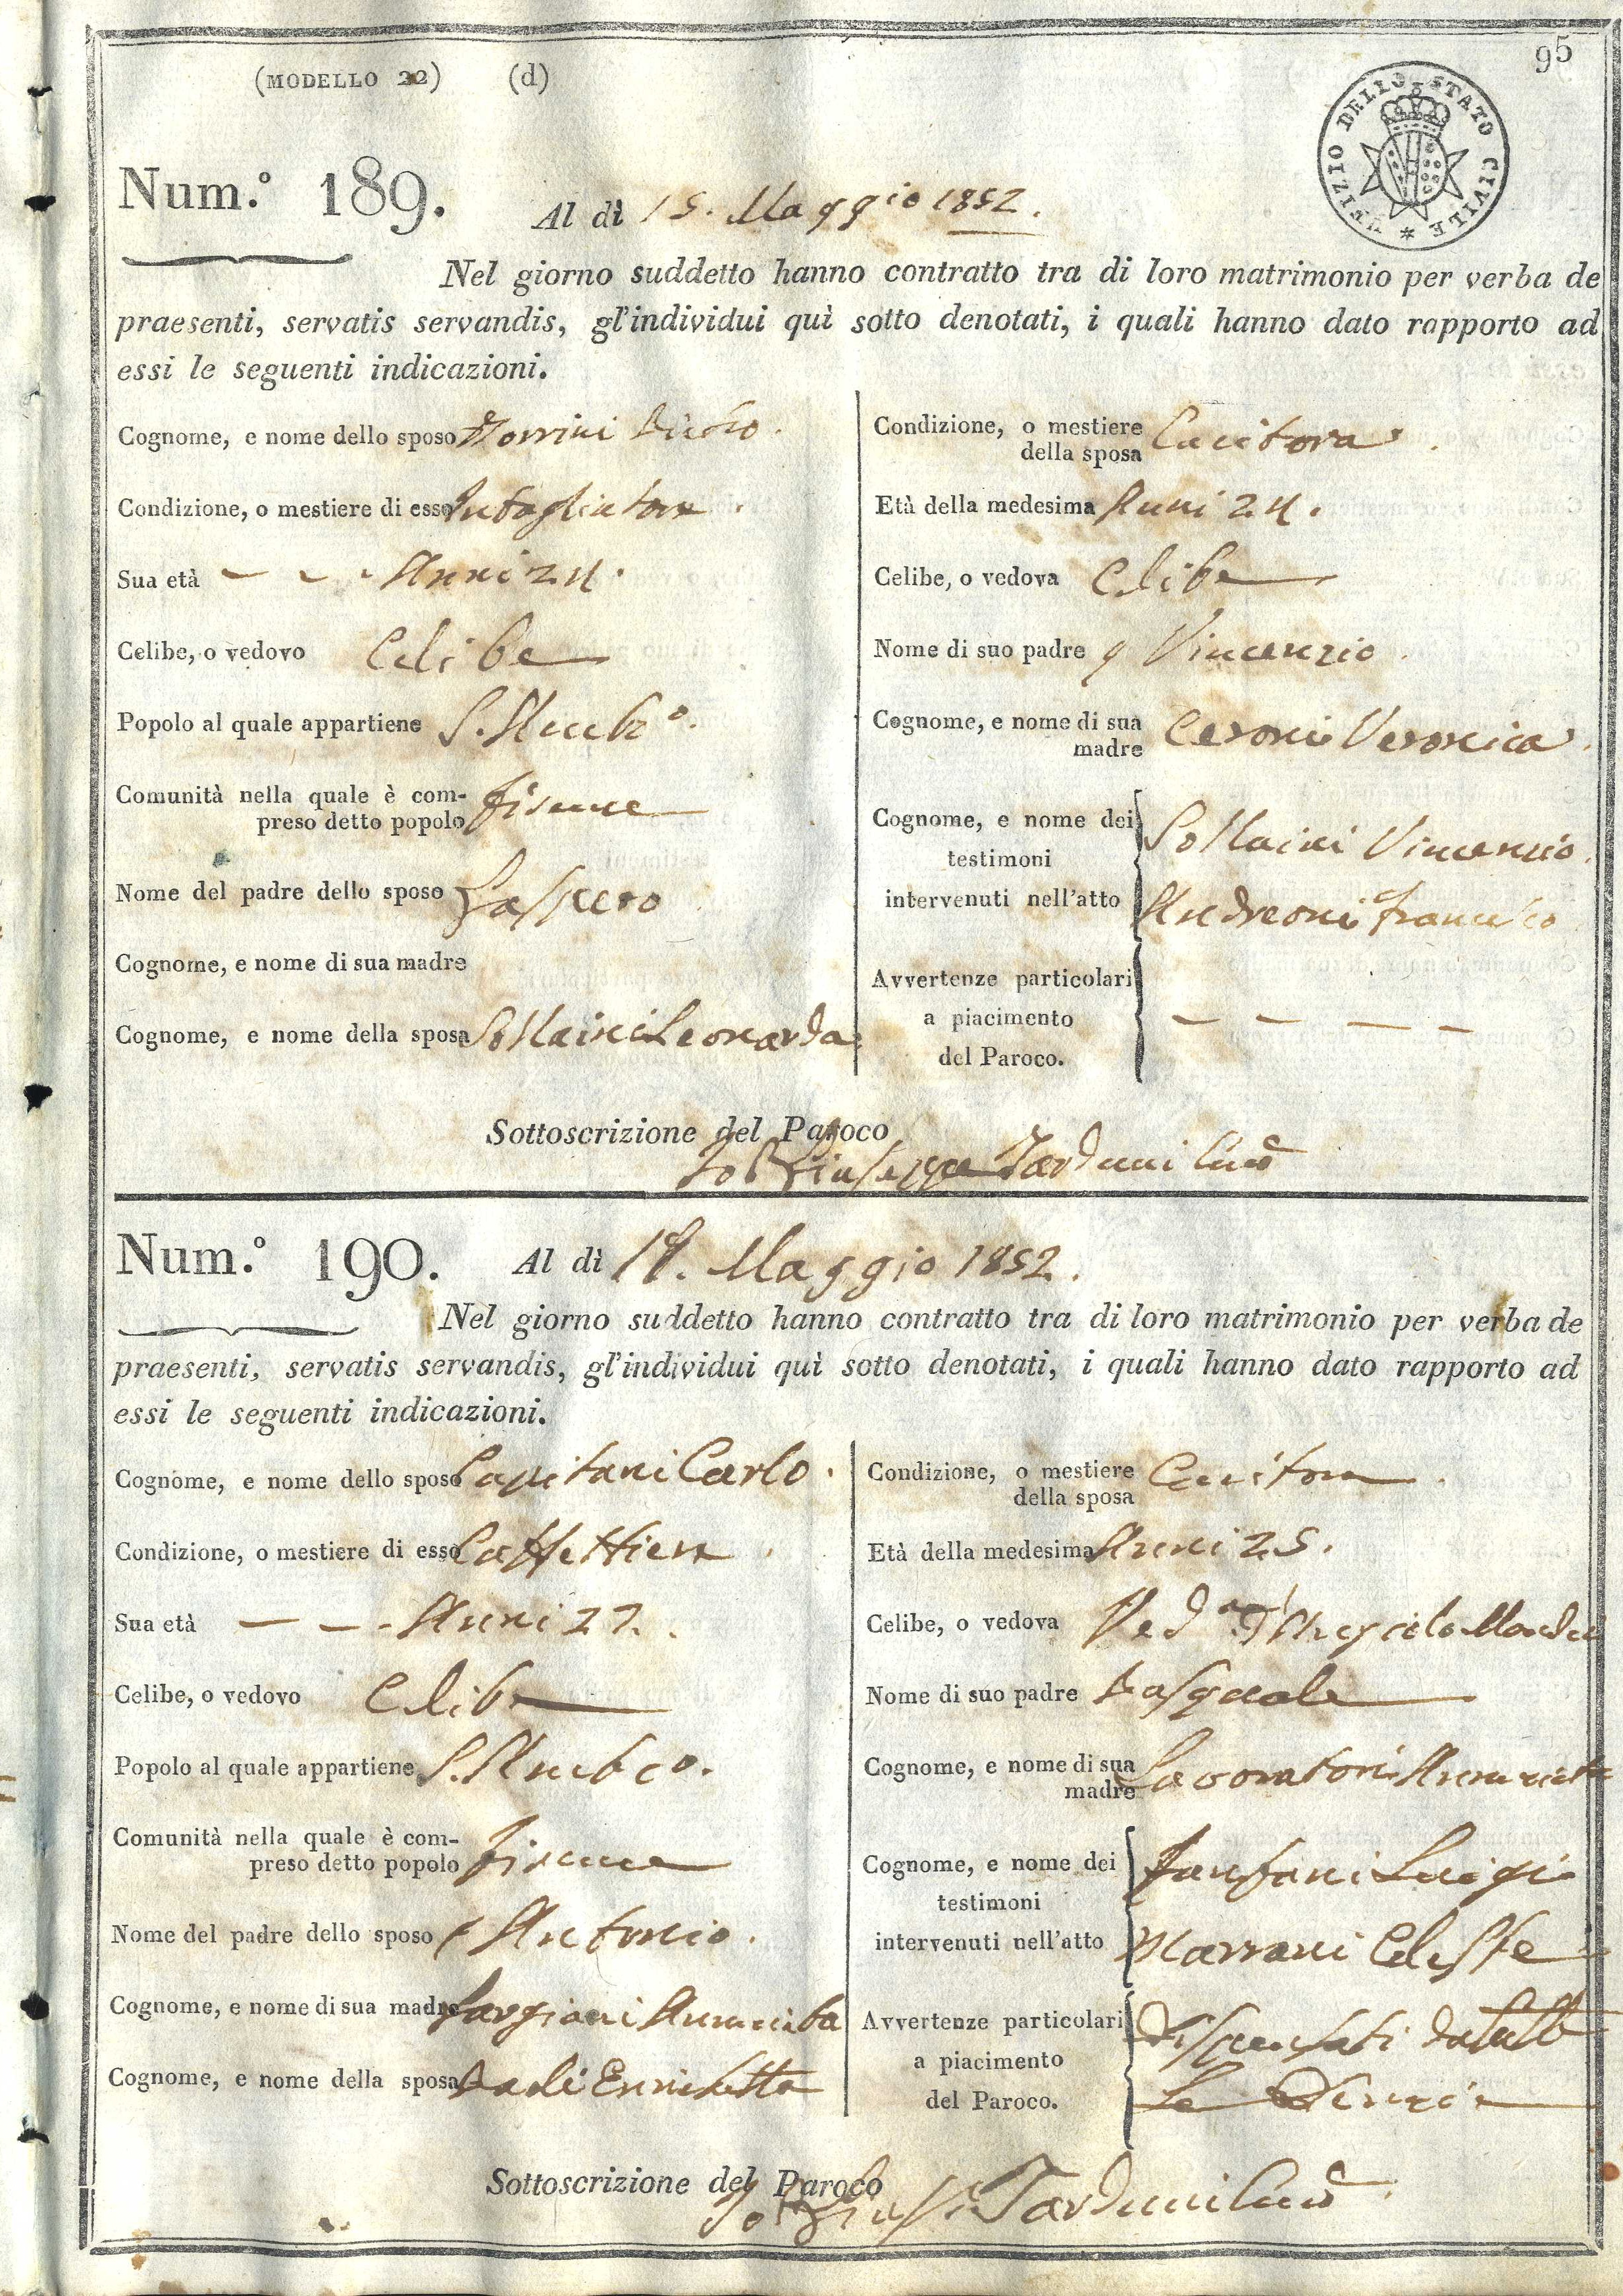 95
(MODELLO 22) (d)
UFIZIO DELLO STATO CIVILE *
Num.º 189. Al dì 15. Maggio 1852.
Nel giorno suddetto hanno contratto tra di loro matrimonio per verba de
praesenti, servatis servandis, gl'individui quì sotto denotati, i quali hanno dato rapporto ad
essi le seguenti indicazioni.
Cognome, e nome dello sposo
Condizione, o mestiere di esso Intagliatore
Sua età Anni 24.
Celibe, o vedovo Celibe
Popolo al quale appartiene
Comunità nella quale è com-
preso detto popolo Firenze
Nome del padre dello sposo Gaspero
Cognome, e nome di sua madre
Cognome, e nome della sposa Sollaini Leonarda
Condizione, o mestiere
della sposa Cucitora
Età della medesima Anni 24.
Celibe, o vedova Celibe
Nome di suo padre q Vincenzio
Cognome, e nome di sua
madre Ceroni Veronica
Cognome, e nome dei
testimoni
intervenuti nell'atto
Sollaini Vincenzio
Andreoni Francesco
Avvertenze particolari
a piacimento
del Paroco.
Sottoscrizione del Paroco
Io P. Giuseppe Tarduni
Num.º 190. Al dì Maggio 1852.
Nel giorno suddetto hanno contratto tra di loro matrimonio per verba de
praesenti, servatis servandis, gl'individui quì sotto denotati, i quali hanno dato rapporto ad
essi le seguenti indicazioni.
Cognome, e nome dello sposo Capitani Carlo.
Condizione, o mestiere di esso Caffettiere
Sua età Anni 27.
Celibe, o vedovo Celibe
Popolo al quale appartiene
Comunità nella quale è com-
preso detto popolo Firenze
Nome del padre dello sposo Antonio.
Cognome, e nome di sua madre Annunziata
Cognome, e nome della sposa Enrichetta
Condizione, o mestiere
della sposa Cucitora
Età della medesima Anni 25.
Celibe, o vedova Ved.a
Nome di suo padre Pasquale
Cognome, e nome di sua
madre Lavoratori Annunziata
Cognome, e nome dei
testimoni
intervenuti nell'atto
Fanfani Luigi
Marrani Celeste
Avvertenze particolari
a piacimento
del Paroco.
Dispensati da tutte
le Denunzie
Sottoscrizione del Paroco
Io P. Tarduni